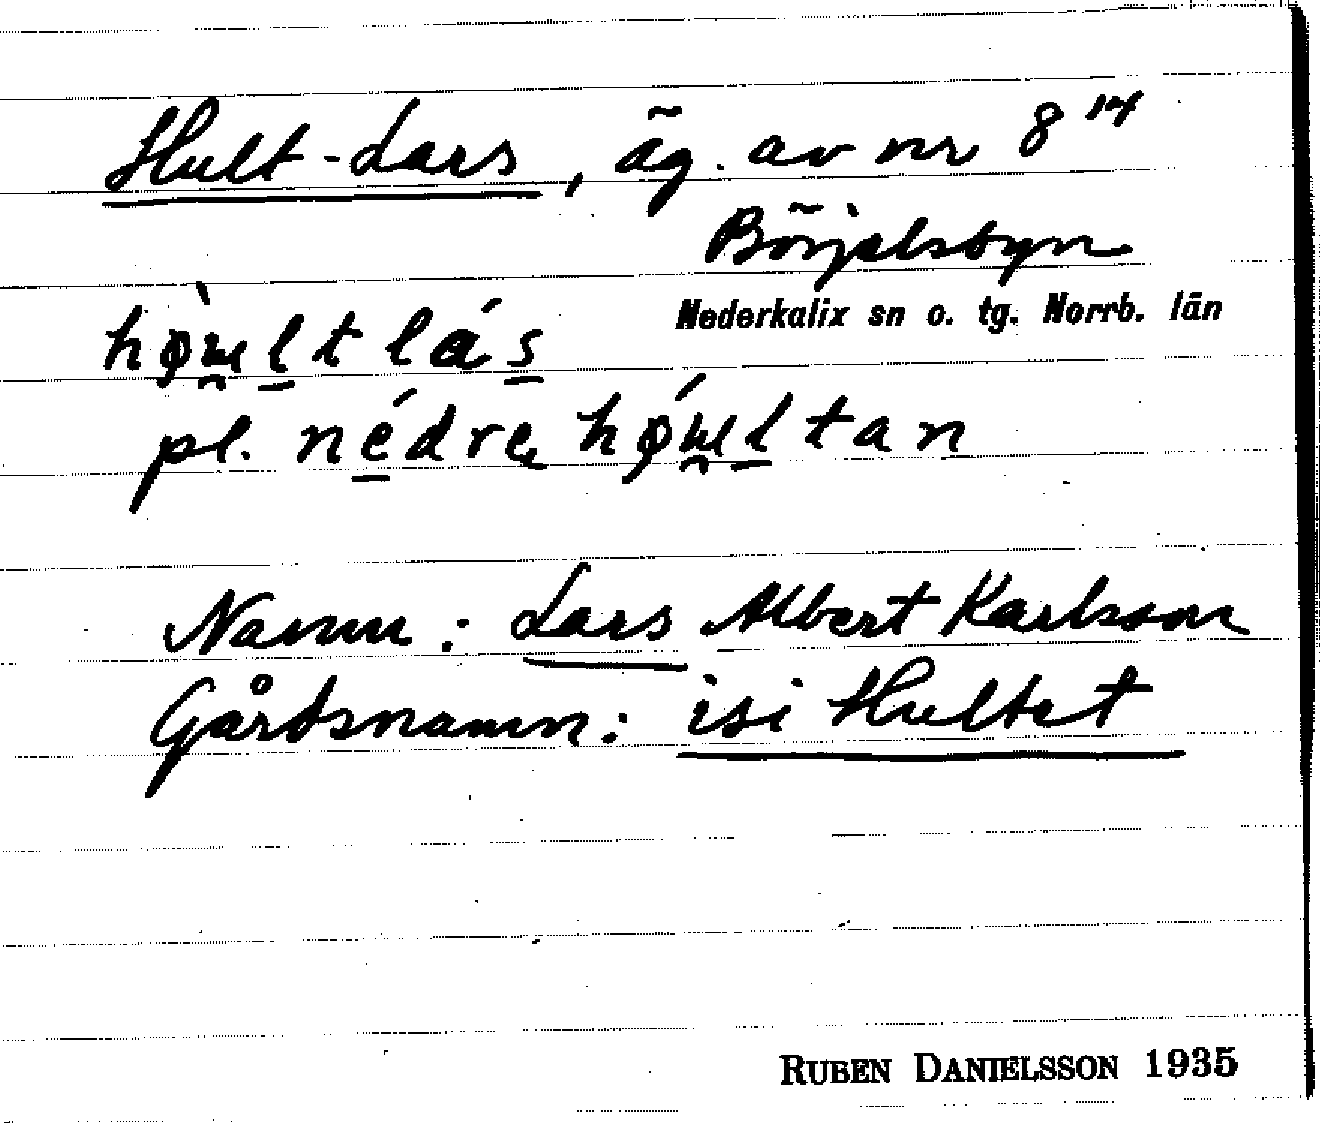 Hult-Lars, äg. av nr 8¹⁴
Börjelsbyn
Nederkalix sn o. tg. Norrb. län
hø̀ɯltlás
pl. nédre hǿɯltan
Namn: Lars Albert Karlsson
Gårdsnamn: isi Hultet
RUBEN DANIELSSON 1935